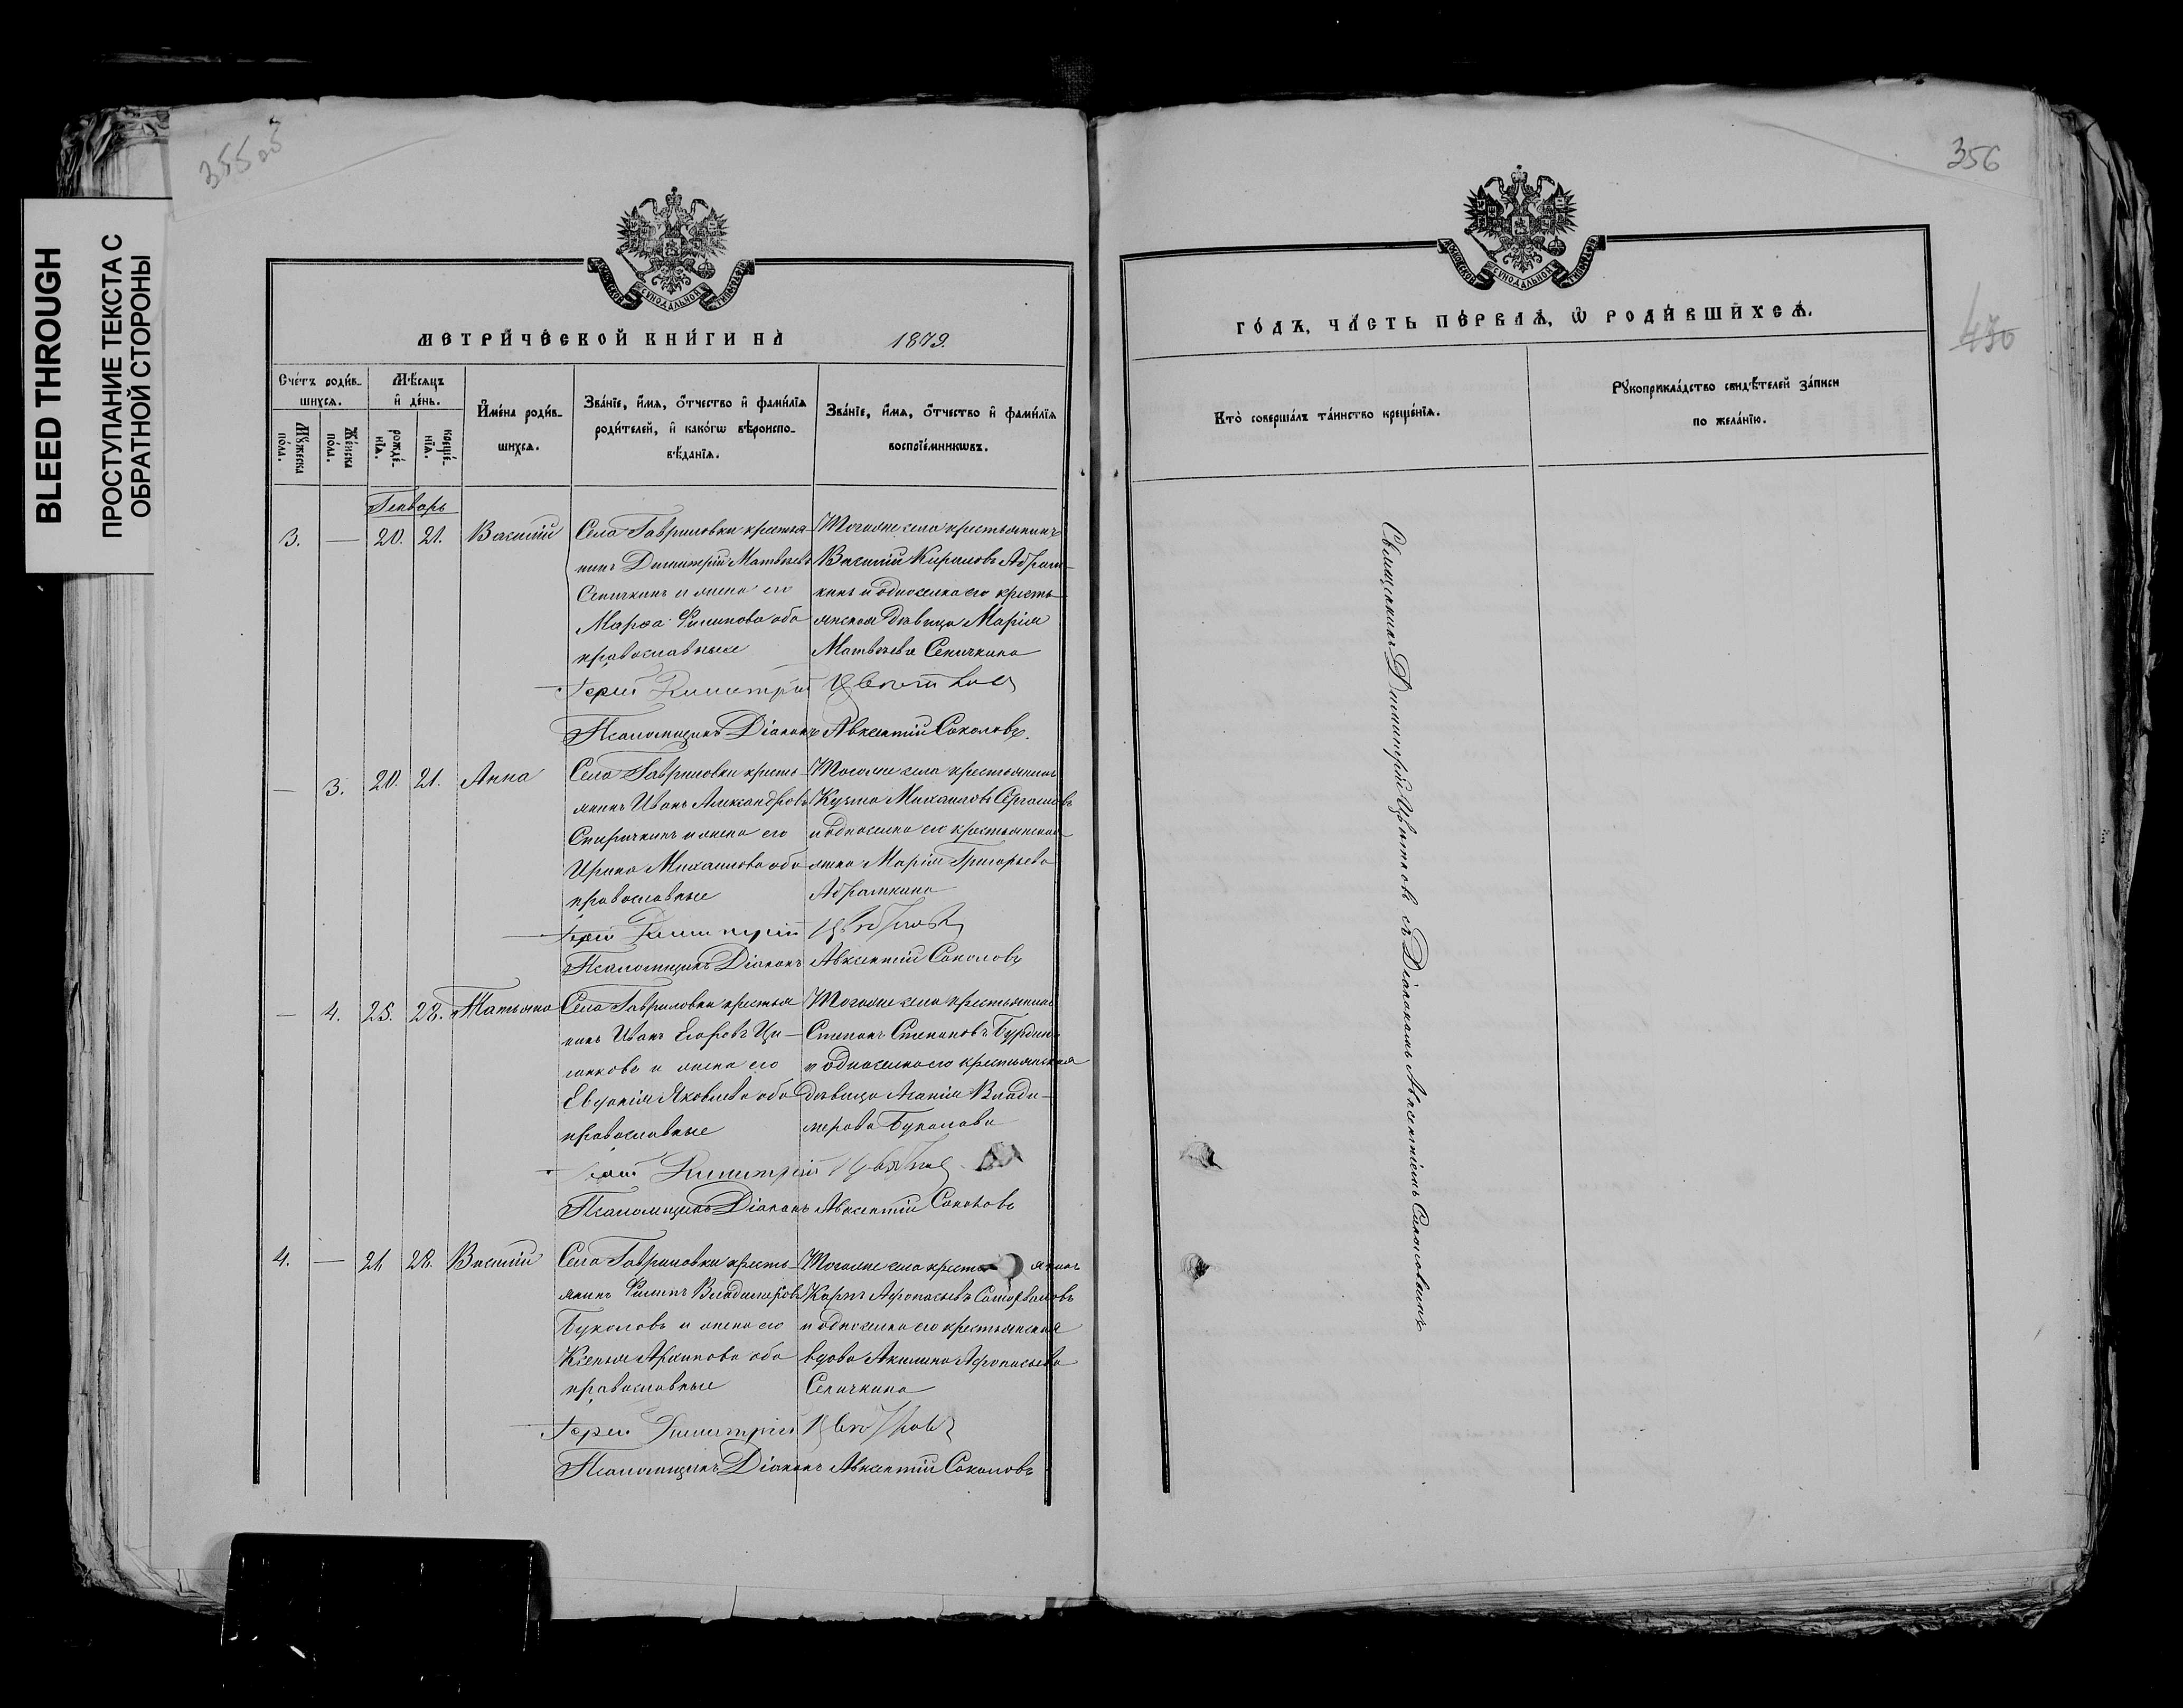 355 об
356
430
BLEED THROUGH
ПРОСТУПАНИЕ ТЕКСТА С
ОБРАТНОЙ СТОРОНЫ
МОСКОВСКОЙ СѴНОДАЛЬНОЙ ТИПОГРАФІИ
МЕТРИ́ЧЕСКОЙ КНИ́ГИ НА̀ 1879.
Сче́тъ роди́в-
шихсѧ.
Мꙋ́жеска
по́ла.
Же́нска
по́ла.
Мѣ́сѧцъ
и҆ де́нь.
рожде́-
нїѧ.
креще́-
нїѧ.
И҆мена̀ роди́в-
шихсѧ.
Зва́нїе, и҆́мѧ, ѻ҆́тчество и҆ фами́лїѧ
роди́телей, и҆ како́гѡ вѣроиспо-
вѣ́данїѧ.
Зва́нїе, и҆́мѧ, ѻ҆́тчество и҆ фами́лїѧ
воспрїе́мникѡвъ.
Генварь
3. — 20. 21. Василій
Села Гавриловки крестья-
нинъ Димитрій Матвѣевъ
Сеничкинъ и жена его
Марѳа Филипова оба
православные
Тогоже села крестьянинъ
Василій Кириловъ Абрам-
кинъ и односелка его кресть-
янская дѣвица Марія
Матвѣева Сеничкина
Іерей Димитрій Цвѣтковъ
Псаломщикъ Діаконъ Авксентій Соколовъ.
— 3. 20. 21. Анна
Села Гавриловки кресть-
янинъ Иванъ Александровъ
Спиричкинъ и жена его
Ирина Михаилова оба
православные
Тогоже села крестьянинъ
Кузма Михаиловъ
и односелка его крестьянская
жена Марія Григорьева
Абрамкина
Іерей Димитрій Цвѣтковъ
Псаломщикъ Діаконъ Авксентій Соколовъ
— 4. 25. 28. Татьяна
Села Гавриловки крестья
нинъ Иванъ Егоровъ Ци-
ганковъ и жена его
Евфимія Яковлева оба
православные
Тогоже села крестьянинъ
Степанъ Степановъ Бурдинъ
и односелка его крестьянская
дѣвица Агапія Влади-
мерова Буколова
Іерей Димитрій Цвѣтковъ
Псаломщикъ Діаконъ Авксентій Соколовъ
4. — 21. 28. Василій
Села Гавриловки кресть-
янинъ Филипъ Владимеровъ
Буколовъ и жена его
Ксенія Архипова оба
православные
Тогоже села крестьянинъ
Карпъ Афонасьевъ
и односелка его крестьянская
вдова Акилина Афонасьева
Сеничкина
Іерей Димитрій Цвѣтковъ
Псаломщикъ Діаконъ Авксентій Соколовъ
МОСКОВСКОЙ СѴНОДАЛЬНОЙ ТИПОГРАФІИ
ГО́ДЪ, ЧА́СТЬ ПЕ́РВАѦ, Ѡ҆ РОДИ́ВШИХСѦ.
Кто̀ соверша́лъ та́инство креще́нїѧ.
Рꙋкоприкла́дство свидѣ́телей за́писи
по жела́нїю.
Священникъ Димитрій Цвѣтковъ съ Діакономъ Авксентіемъ Соколовымъ